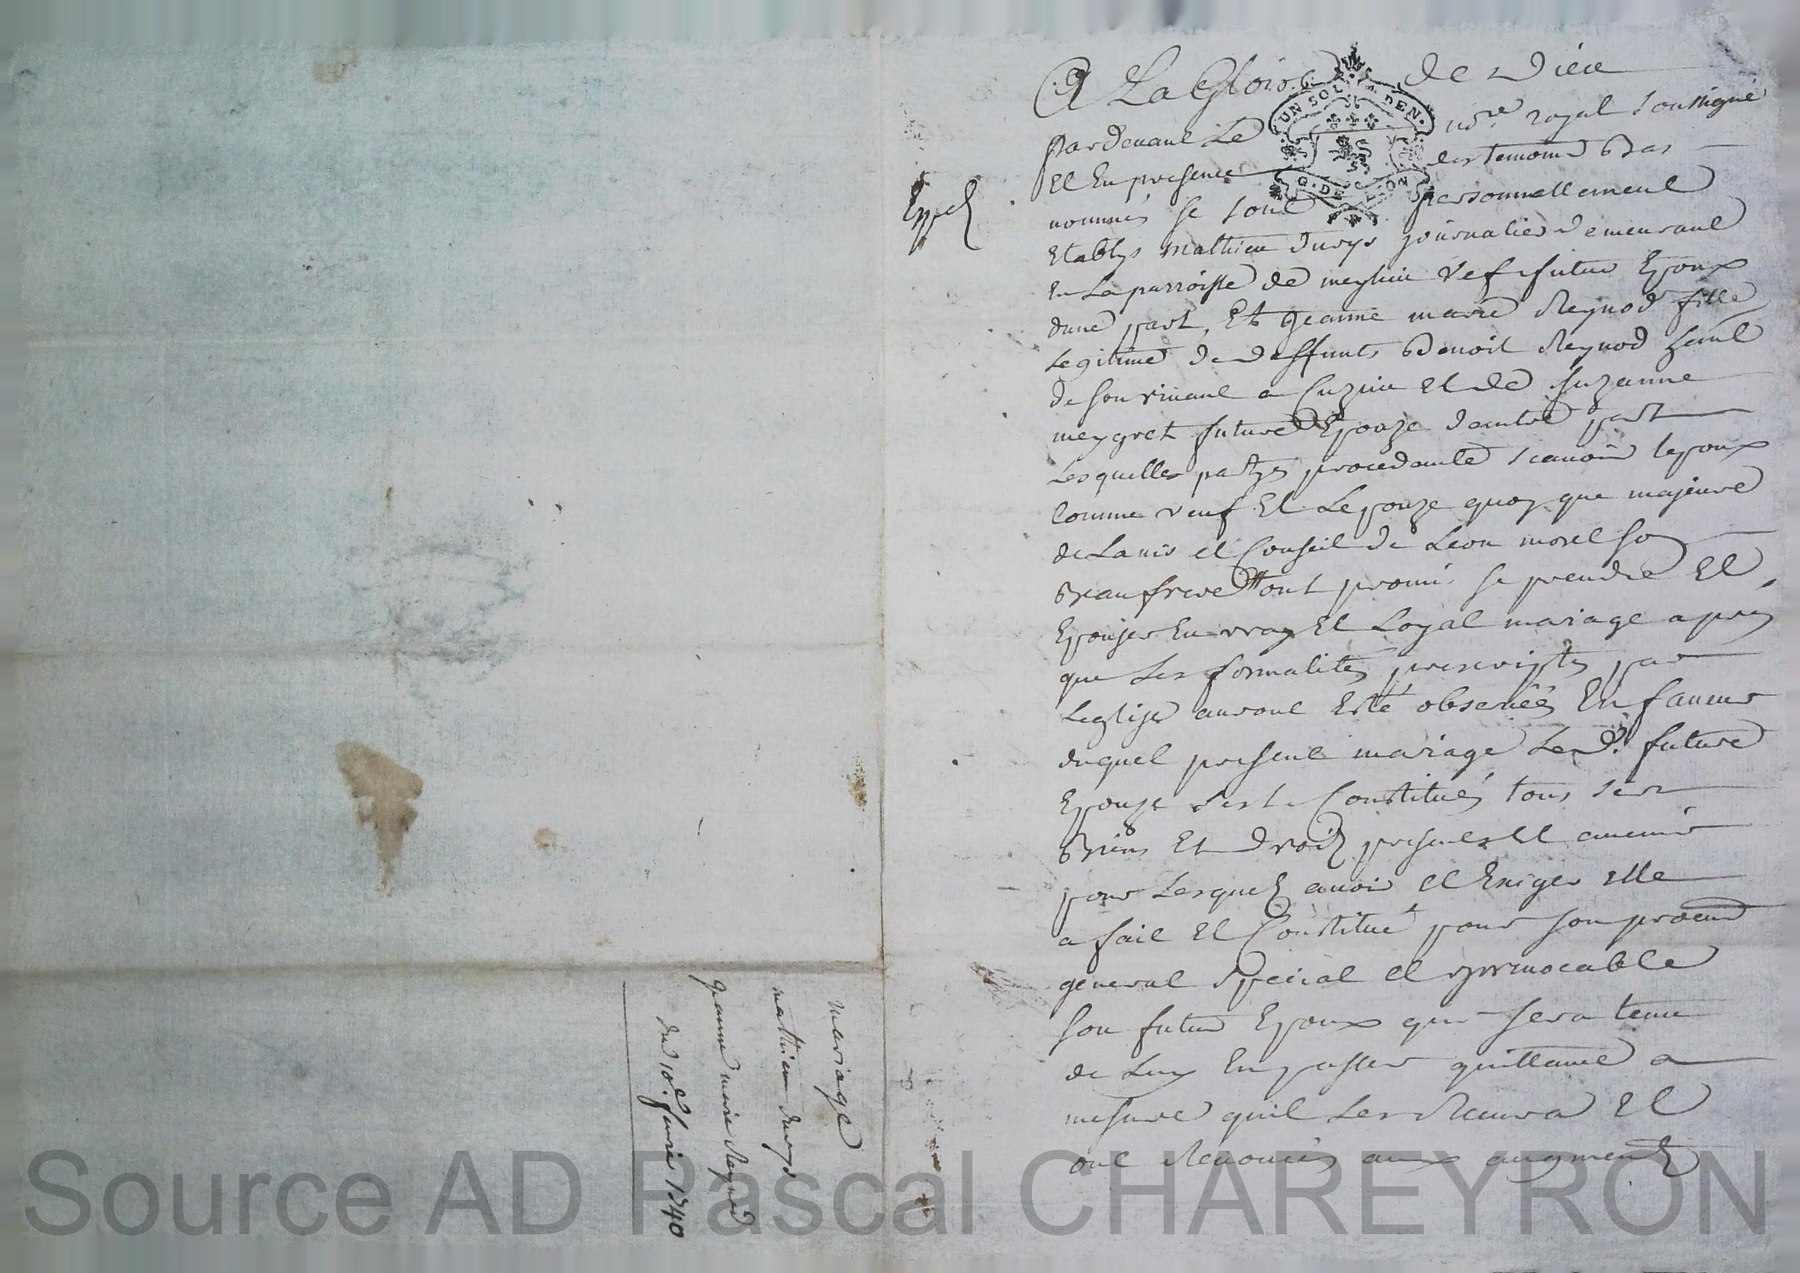 A La Gloire de Dieu
Pardevant Le nore. royal soussigné
Et En presence des temoins bas
nommés se sont personnellement
Etablys mathieu durys journalier demeurant
En La parroisse de meylieu Vef futur Epoux
dune part, Et Jeanne marie Reynod fille
Legitime de deffunts Benoit Reynod
de son vivant a Cuzieu et de Suzanne
meygret future Epouze dautre part
Lesquelles partyes procedante scavoir lepoux
comme veuf Et Lepouze quoy que majeure
de Lavis et Conseil de Leon morel son
Beaufrere ont promis se prendre Et
Epouser En vray Et Loyal mariage apres
que Les formalités prescriptes par
Leglise auront Esté observées En faveur
duquel present mariage Lad. future
Epouze s'est Constitués tous ses
Biens Et droits presents Et avenir
pour Lesquels avoir et Exiger elle
a fait et Constitué pour son procur
general special et yrrevocable
son futur Epoux qui sera tenu
de Luy En passer quittance a
mesure quil Les Recevra Et
ont Renoncés aux augments
Expé
mariage
mathieu durys
Jeanne marie Reynod
du 10e. 1740
UN SOL DEN.
G. DE LION
Source AD Pascal CHAREYRON